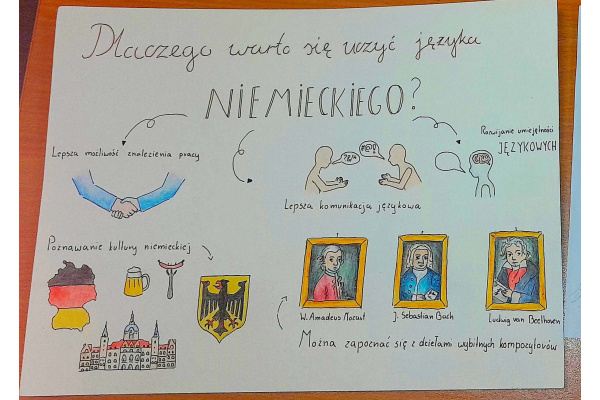 Dlaczego warto się uczyć języka
NIEMIECKIEGO?
Rozwijanie umiejętności
JĘZYKOWYCH
Lepsza możliwość znalezienia pracy
Lepsza komunikacja językowa
Poznawanie kultury niemieckiej
W. Amadeus Mozart
J. Sebastian Bach
Ludwig van Beethoven
Można zapoznać się z dziełami wybitnych kompozytorów